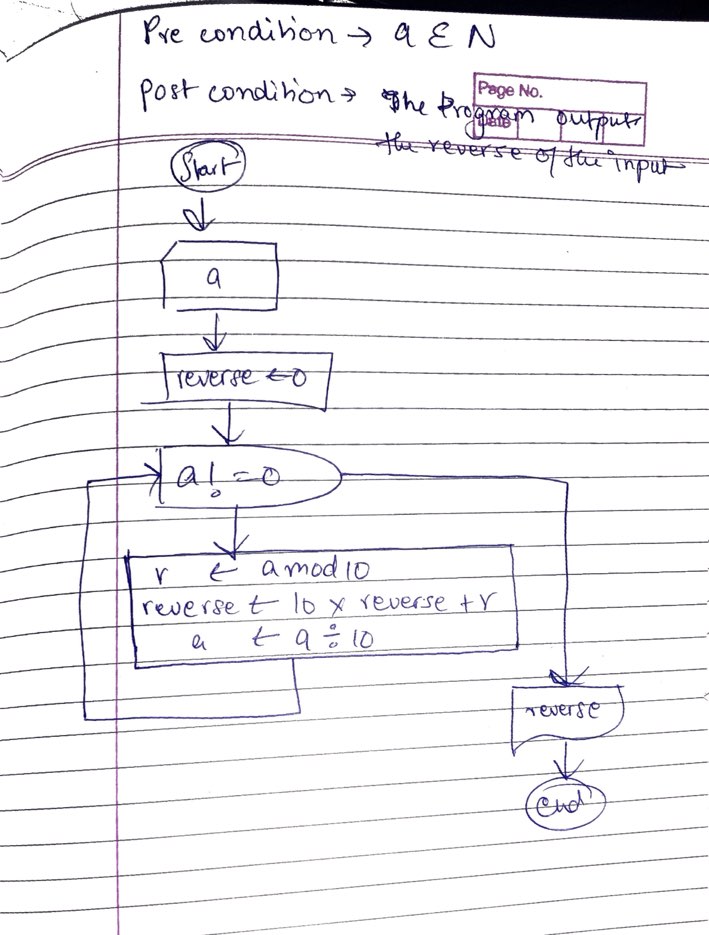 Pre condition → a ε N
Page No.
Post condition → The Program outputs
Date
the reverse of the input
Start
a
reverse ← 0
a != 0
r ← a mod 10
reverse ← 10 × reverse + r
a ← a ÷ 10
reverse
End